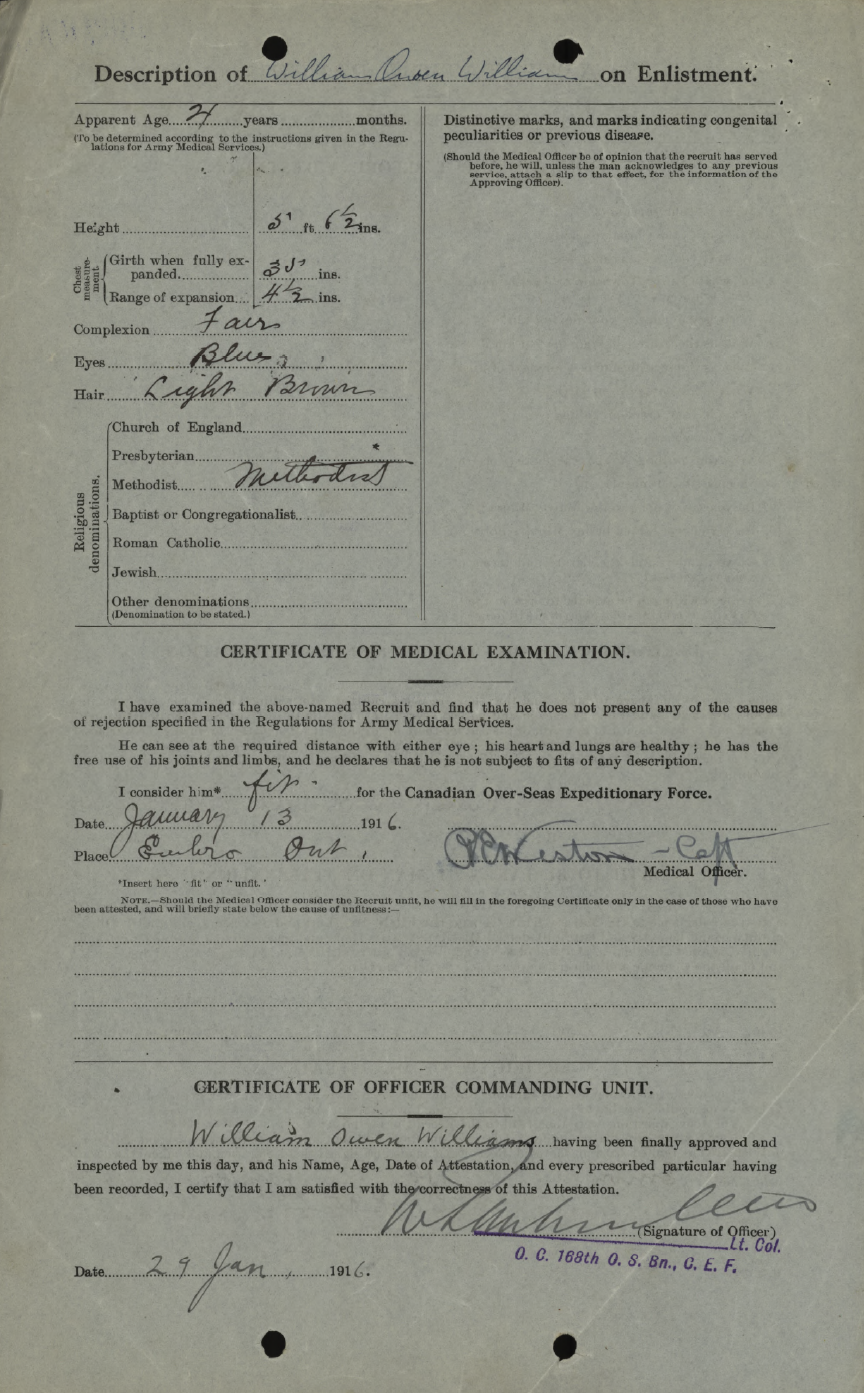 Description of William Owen Williams on Enlistment.
Apparent Age........years..................months.
(To be determined according to the instructions given in the Regulations for Army Medical Services.)
Height 5' ft 6½ ins.
Chest measurement
Girth when fully expanded 35 ins.
Range of expansion 4½ ins.
Complexion Fair
Eyes Blue
Hair Light Brown
Religious denominations.
Church of England
Presbyterian
Methodist Methodist
Baptist or Congregationalist
Roman Catholic
Jewish
Other denominations
(Denomination to be stated.)
Distinctive marks, and marks indicating congenital
peculiarities or previous disease.
(Should the Medical Officer be of opinion that the recruit has served
before, he will, unless the man acknowledges to any previous
service, attach a slip to that effect, for the information of the
Approving Officer).
CERTIFICATE OF MEDICAL EXAMINATION.
I have examined the above-named Recruit and find that he does not present any of the causes
of rejection specified in the Regulations for Army Medical Services.
He can see at the required distance with either eye ; his heart and lungs are healthy ; he has the
free use of his joints and limbs, and he declares that he is not subject to fits of any description.
I consider him* fit for the Canadian Over-Seas Expeditionary Force.
Date January 13 1916.
Place Embro Ont.
Weston - Capt
Medical Officer.
*Insert here "fit" or "unfit."
NOTE.—Should the Medical Officer consider the Recruit unfit, he will fill in the foregoing Certificate only in the case of those who have
been attested, and will briefly state below the cause of unfitness:—
CERTIFICATE OF OFFICER COMMANDING UNIT.
William Owen Williams having been finally approved and
inspected by me this day, and his Name, Age, Date of Attestation, and every prescribed particular having
been recorded, I certify that I am satisfied with the correctness of this Attestation.
(Signature of Officer)
Lt. Col.
O. C. 168th O. S. Bn., C. E. F.
Date 29 Jan. 1916.